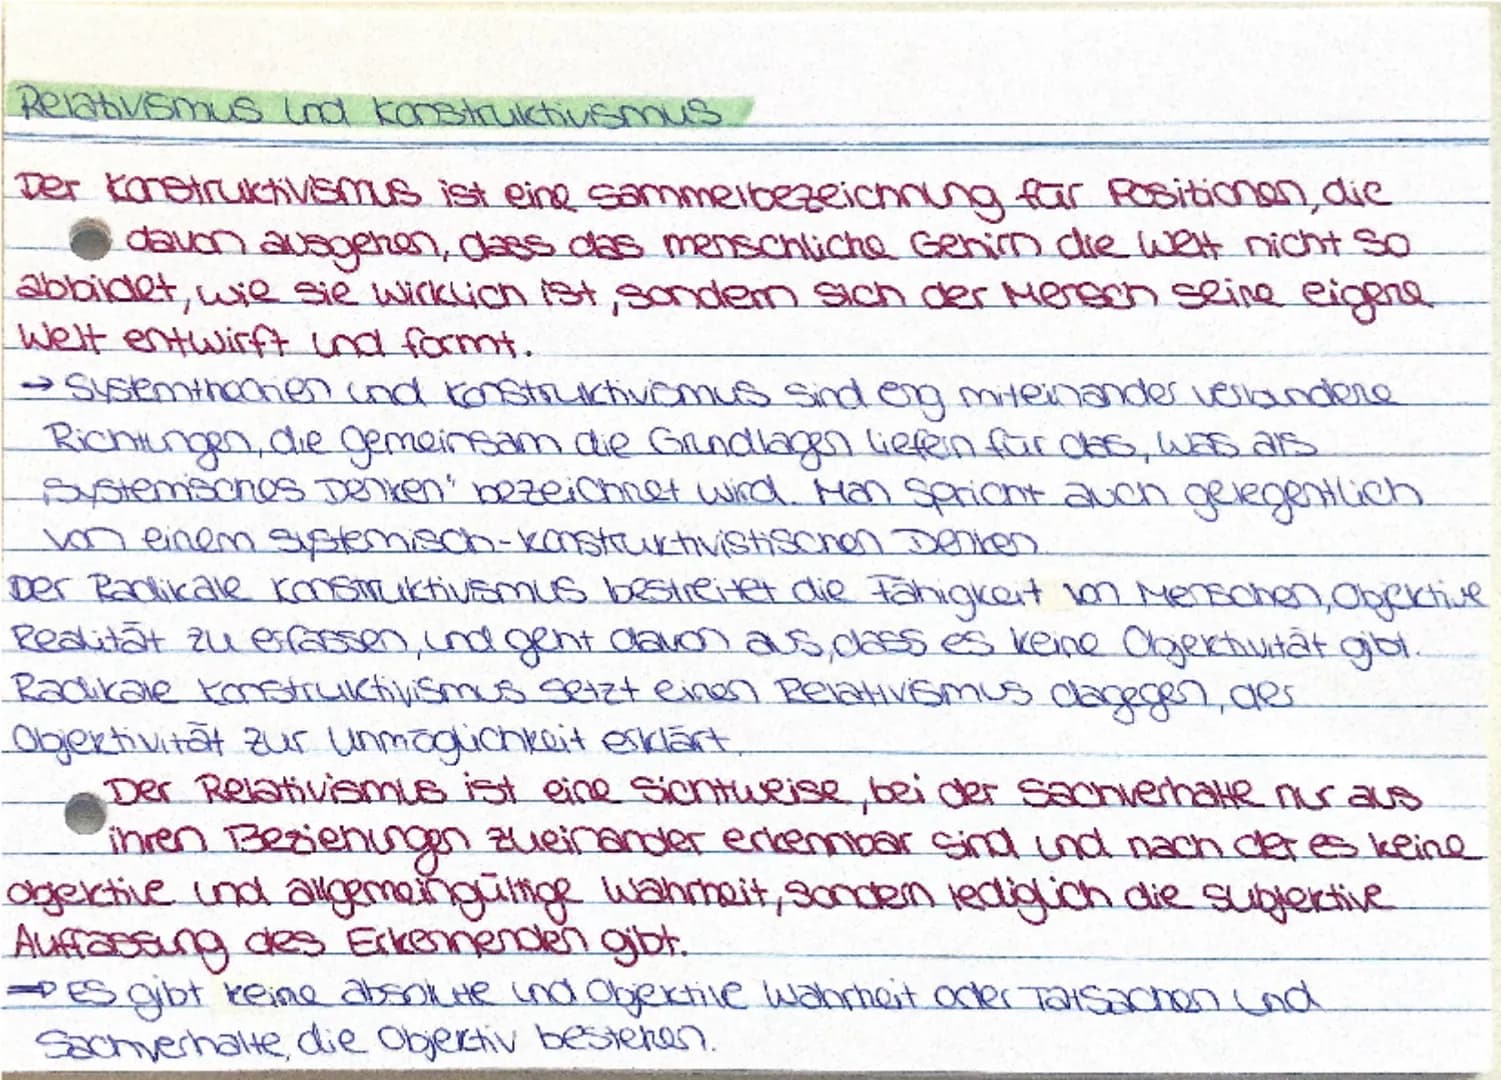 Relativismus und Konstruktivismus
Der Konstruktivismus ist eine Sammelbezeichnung für Positionen, die
davon ausgehen, dass das menschliche Gehirn die Welt nicht so
abbildet, wie sie wirklich ist, sondern sich der Mensch seine eigene
Welt entwirft und formt.
→ Systemtheorien und Konstruktivismus sind eng miteinander verbundene
Richtungen, die gemeinsam die Grundlagen liefern für das, was als
"systemisches Denken" bezeichnet wird. Man spricht auch gelegentlich
von einem systemisch-konstruktivistischen Denken
Der Radikale Konstruktivismus bestreitet die Fähigkeit von Menschen, objektive
Realität zu erfassen, und geht davon aus, dass es keine Objektivität gibt.
Radikale Konstruktivismus setzt einen Relativismus dagegen, der
Objektivität zur Unmöglichkeit erklärt.
Der Relativismus ist eine Sichtweise, bei der Sachverhalte nur aus
ihren Beziehungen zueinander erkennbar sind und nach der es keine
objektive und allgemeingültige Wahrheit, sondern lediglich die subjektive
Auffassung des Erkennenden gibt.
⇒ Es gibt keine absolute und objektive Wahrheit oder Tatsachen und
Sachverhalte, die Objektiv bestehen.